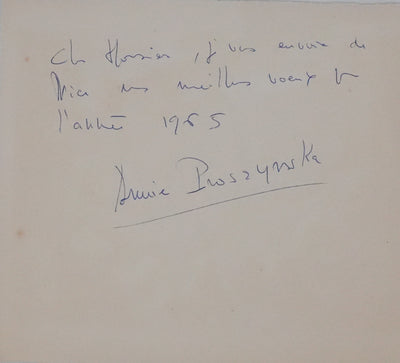 Ch Monsieur, j vous envoie de
Nice mes meilleurs voeux pr
l'année 1965
Annie Proszynska